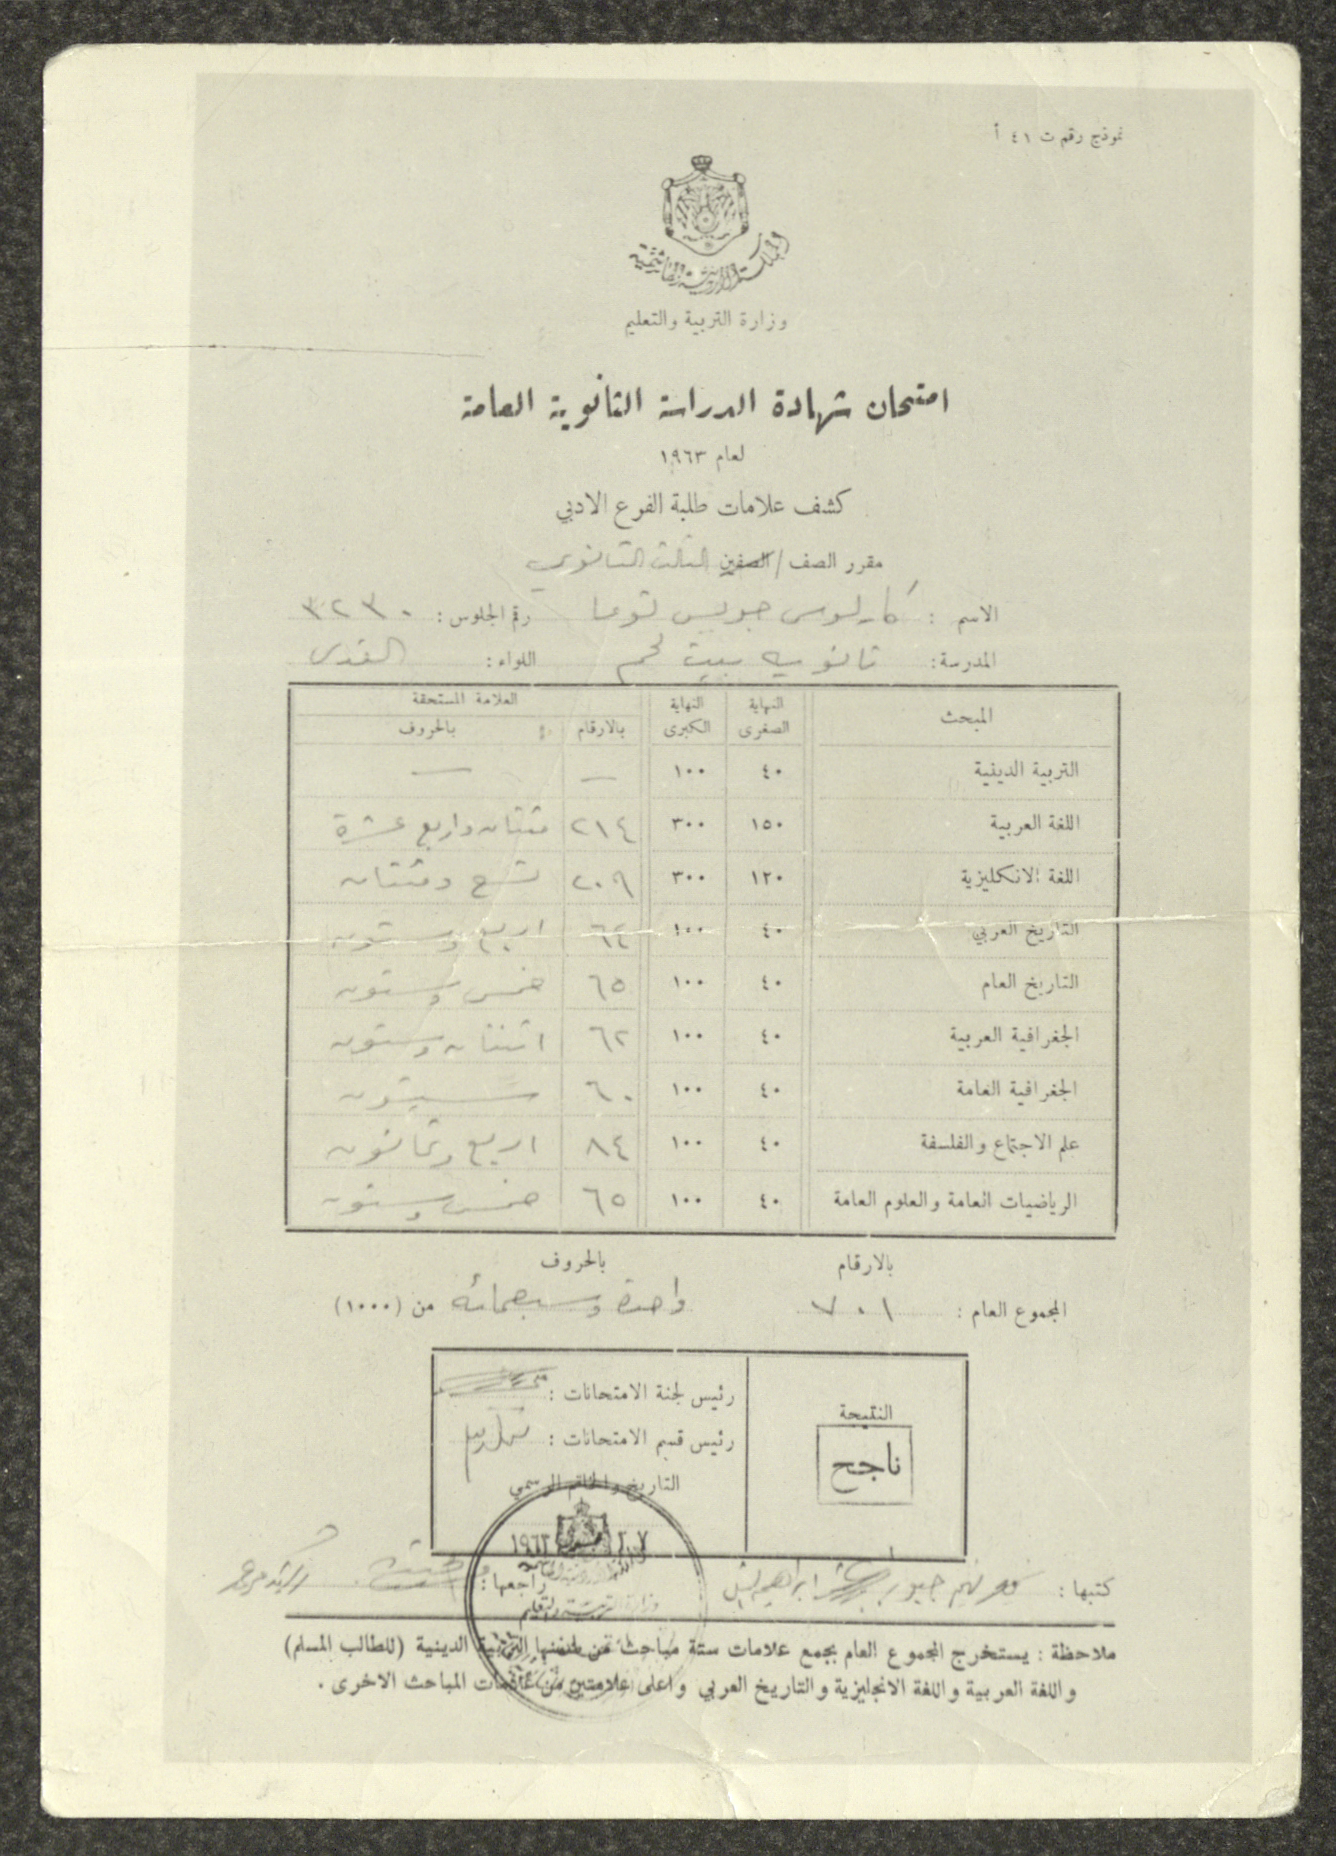 نموذج رقم ت ٤١ أ
المملكة الأردنية الهاشمية
وزارة التربية والتعليم
امتحان شهادة الدراسة الثانوية العامة
لعام ١٩٦٣
كشف علامات طلبة الفرع الادبي
مقرر الصف / الصفين الثالث الثانوي
الاسم : كارلوس جريس توما رقم الجلوس : ٣٢٣٠
المدرسة : ثانوية بيت لحم اللواء : القدس
المبحث النهاية الصغرى النهاية الكبرى العلامة المستحقة
بالارقام بالحروف
التربية الدينية ٤٠ ١٠٠ — —
اللغة العربية ١٥٠ ٣٠٠ ٢١٤ مئتان واربع عشرة
اللغة الانكليزية ١٢٠ ٣٠٠ ٢٠٩ تسع ومئتان
التاريخ العربي ٤٠ ١٠٠ ٦٤ اربع وستون
التاريخ العام ٤٠ ١٠٠ ٦٥ خمس وستون
الجغرافية العربية ٤٠ ١٠٠ ٦٢ اثنتان وستون
الجغرافية العامة ٤٠ ١٠٠ ٦٠ ستون
علم الاجتماع والفلسفة ٤٠ ١٠٠ ٨٤ اربع وثمانون
الرياضيات العامة والعلوم العامة ٤٠ ١٠٠ ٦٥ خمس وستون
بالارقام بالحروف
المجموع العام : ٧٠١ واحدة وسبعمائه من (١٠٠٠)
النتيجة
ناجح
رئيس لجنة الامتحانات :
رئيس قسم الامتحانات :
التاريخ والخاتم الرسمي
كتبها : راجعها :
وزارة التربية والتعليم
ملاحظة : يستخرج المجموع العام بجمع علامات ستة مباحث من ضمنها التربية الدينية (للطالب المسلم)
واللغة العربية واللغة الانجليزية والتاريخ العربي واعلى علامتين من علامات المباحث الاخرى .